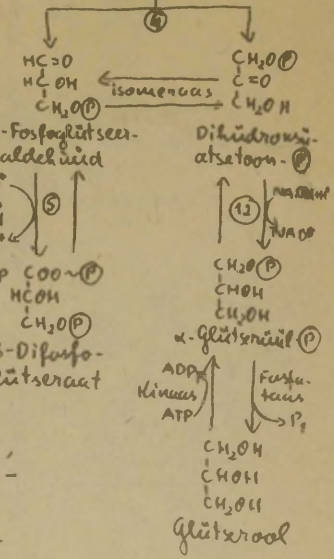 4
HC=O
HC OH
CH₂O(P)
isomeraas
CH₂O(P)
C=O
CH₂OH
-Fosfoglütseer-
aldehüüd
Dihüdroksü-
atsetoon-(P)
5
12
NADH
NAD
COO~(P)
HCOH
CH₂O(P)
-Difosfo-
lütseraat
CH₂O(P)
CHOH
CH₂OH
α-Glütserüül-(P)
ADP
Kinaas
ATP
Fosfa-
taas
P
CH₂OH
CHOH
CH₂OH
Glütserool